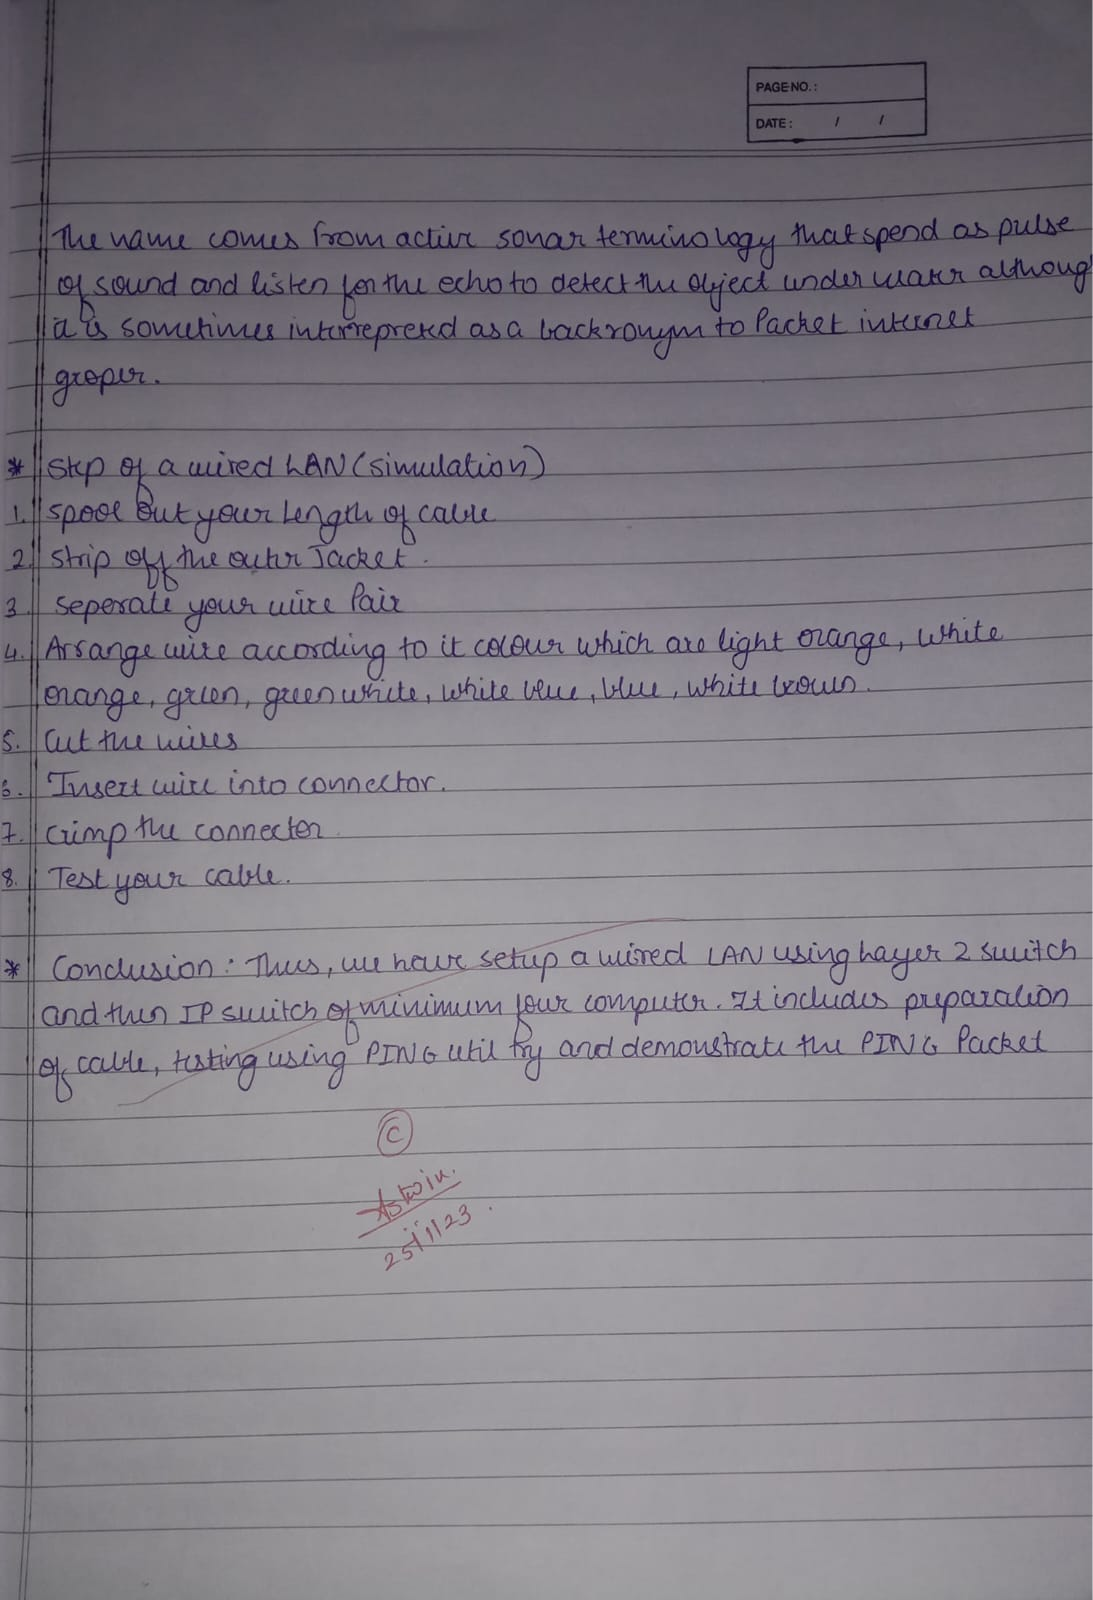 PAGE NO.:
DATE: / /
The name comes from active sonar terminology that spend as pulse
of sound and listen for the echo to detect the object under water althoug
it is sometimes interrepreted as a backronym to Packet internet
groper.
* Step of a wired LAN (simulation)
1. spool out your length of cable
2. strip off the outer Jacket.
3. seperate your wire Pair
4. Arrange wire according to it colour which are light orange, white
orange, green, green white, white blue, blue, white brown.
5. Cut the wires
6. Insert wire into connector.
7. crimp the connector
8. Test your cable.
* Conclusion: Thus, we have setup a wired LAN using Layer 2 switch
and then IP switch of minimum four computer. It includes preparation
of cable, testing using PING utility and demonstrate the PING Packet
C
25/11/23